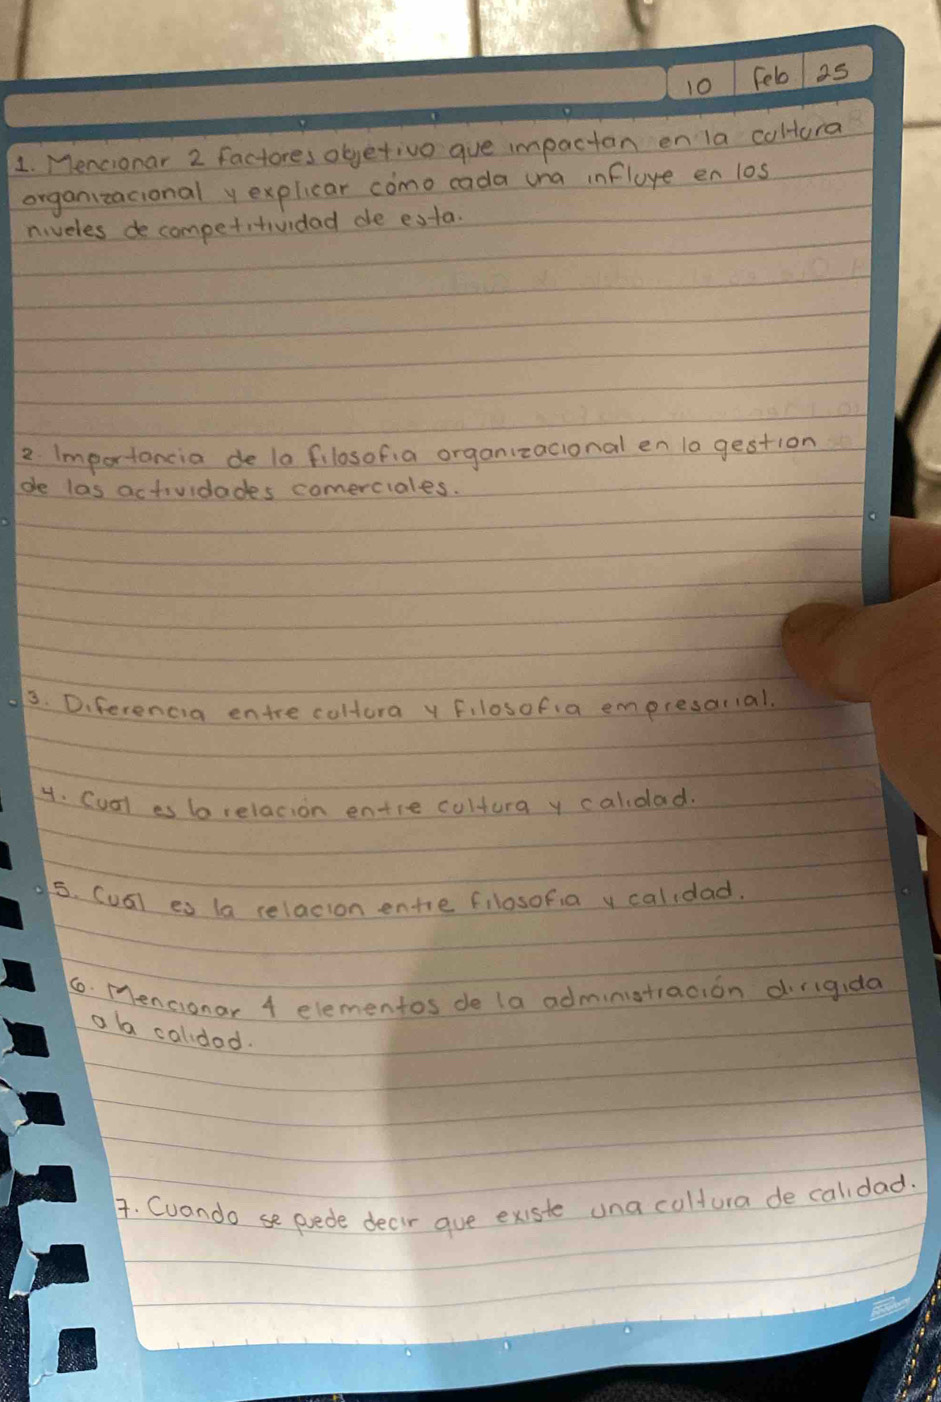 10 Feb 25
1. Mencionar 2 factores objetivo que impactan en la cultura
organizacional y explicar cómo cada una influye en los
niveles de competitividad de esta.
2. Importancia de la filosofia organizacional en la gestion
de las actividades comerciales.
3. Diferencia entre cultura y filosofia empresarial.
4. Cual es la relación entre cultura y calidad.
5. Cuál es la relacion entre filosofia y calidad.
6. Mencionar 4 elementos de la administración dirigida
a la calidad.
7. Cuando se puede decir que existe una cultura de calidad.